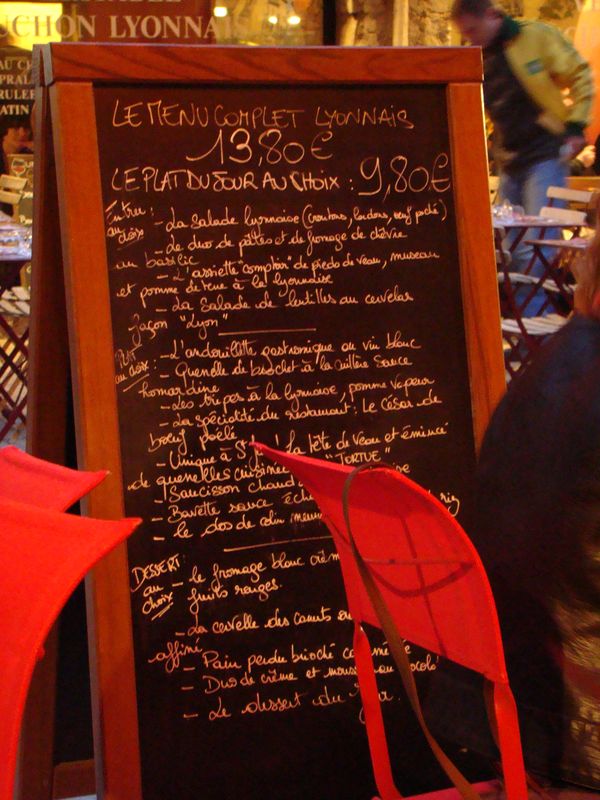 UCHON LYONNAIS
LE MENU COMPLET LYONNAIS
13,80€
LE PLAT DU JOUR AU CHOIX : 9,80€
Entrée au choix : - La Salade lyonnaise (croutons, lardons, oeuf poché)
- Le duo de pâtes et de fromage de chèvre
au basilic
- L'assiette "comptoir" de pieds de veau, museau
et pomme de terre à la lyonnaise
- La Salade de lentilles au cervelas
façon "Lyon"
Plat au choix : - L'andouillette gastronomique au vin blanc
- Quenelle de brochet à la cuillère sauce
homardine
- Les tripes à la lyonnaise, pomme vapeur
- La spécialité du restaurant : Le César de
boeuf poêlé
- Unique à la tête de veau et émincé
de quenelles cuisinée "TORTUE"
- Saucisson chaud
- Bavette sauce riz
- le dos de colin
DESSERT : au choix - le fromage blanc
fruits rouges.
- La cervelle des canuts
affiné
- Pain perdu brioché
- Duo de crème et
- Le dessert du Jour.